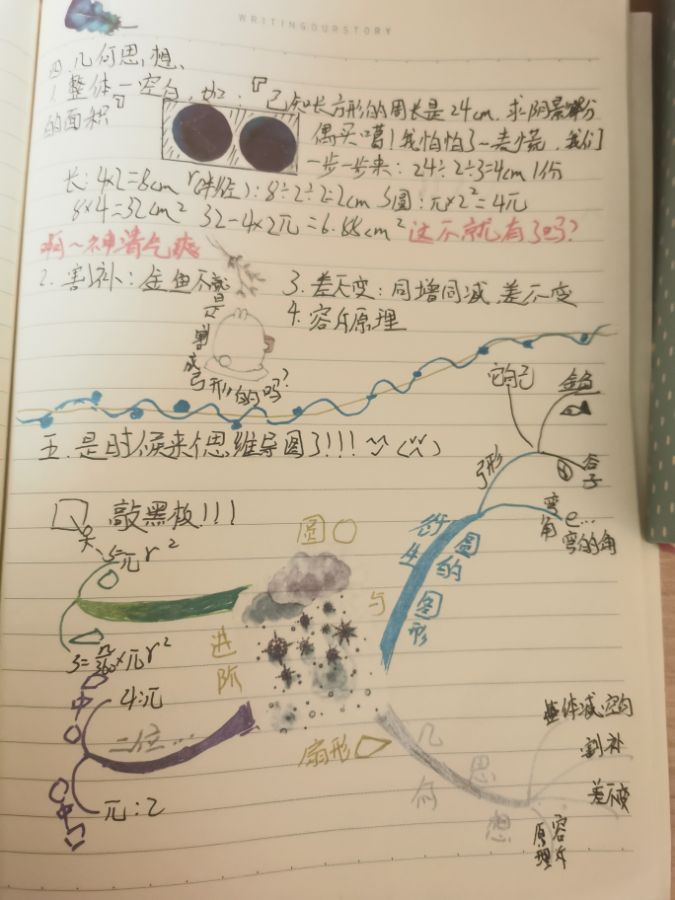 WRITINGOURSTORY
四.几何思想、
1.整体-空白,如:『已知长方形的周长是24cm,求阴影部分
的面积』
偶买噶!我怕怕了~表慌,我们
一步一步来:24÷2÷3=4cm 1份
长:4×2=8cm r(半径):8÷2÷2=2cm S圆:π×2²=4π
8×4=32cm² 32-4×2π=6.88cm² 这不就有了吗?
啊~神清气爽
2.割补:金鱼不就是割成弓形的吗?
3.差不变:同增同减,差不变
4.容斥原理
五.是时候来个思维导图了!!!
敲黑板!!!
圆
与
扇形
进阶
S=πr²
S=n/360×πr²
二位...
4:π
π:2
衍生的图形
圆
弓形
它自己
金鱼
谷子
弯角
弯的角
几何思想
整体减空白
割补
差不变
容斥原理